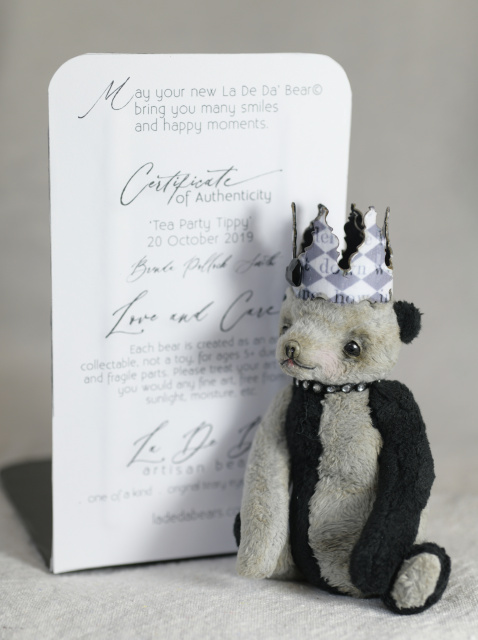 May your new La De Da' Bear©
bring you many smiles
and happy moments.
Certificate
of Authenticity
'Tea Party Tippy'
20 October 2019
Love and Care
Each bear is created as an
collectable, not a toy, for ages 5+ due
and fragile parts. Please treat your
you would any fine art, free from
sunlight, moisture, etc.
La De D
artisan bea
one of a kind original
ladedabears.c
down
now